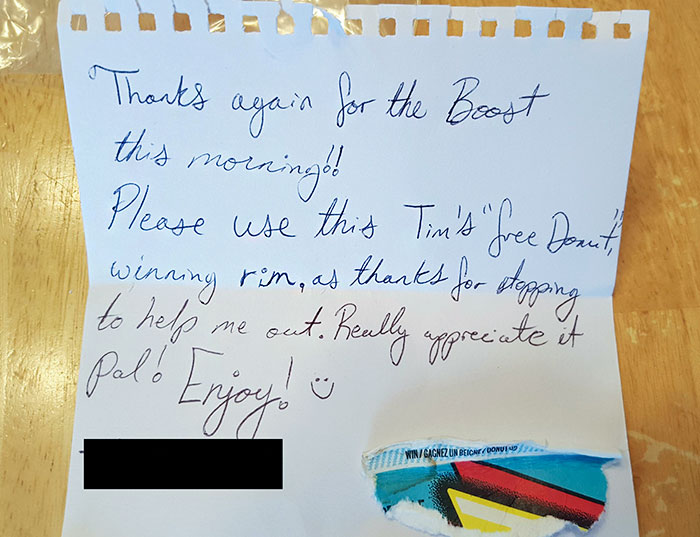 Thanks again for the Boost
this morning!!
Please use this Tim's "free Donut,"
winning rim, as thanks for stopping
to help me out. Really appreciate it
Pal! Enjoy! :)
WIN / GAGNEZ UN BEIGNE / DONUT